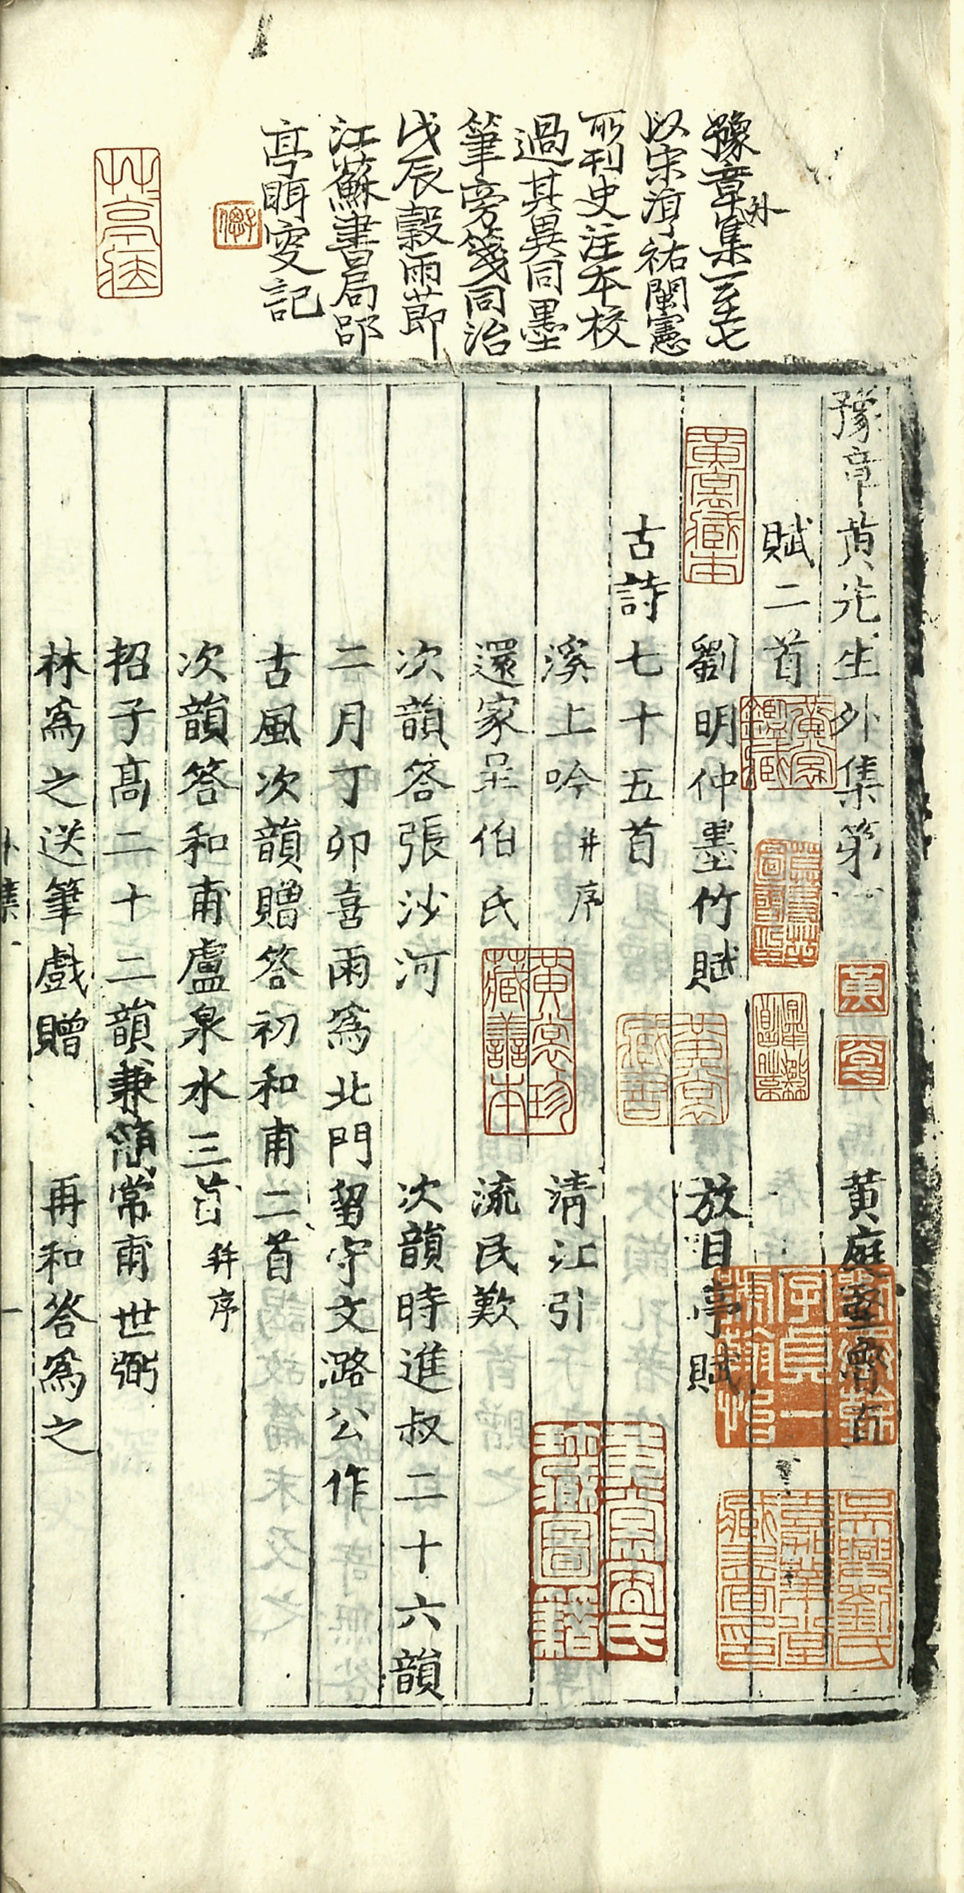 豫章外集一至七
以宋淳祐閩憲
所刊史注本校
過其異同墨
筆旁箋同治
戊辰穀雨節
江蘇書局邵
亭眲叜記
豫章黄先生外集第一
黄庭堅魯直
賦二首
劉明仲墨竹賦 放目亭賦
古詩七十五首
溪上吟并序 清江引
還家呈伯氏 流民歎
次韻答張沙河 次韻時進叔二十六韻
二月丁卯喜雨爲北門留守文潞公作
古風次韻贈答初和甫二首
次韻答和甫盧泉水三首并序
招子高二十二韻兼簡常甫世弼
林爲之送筆戲贈 再和答爲之
外集
一
黄裳藏本
黄裳藏書
黄裳珍藏善本
黄裳
吳興劉氏嘉業堂藏書印